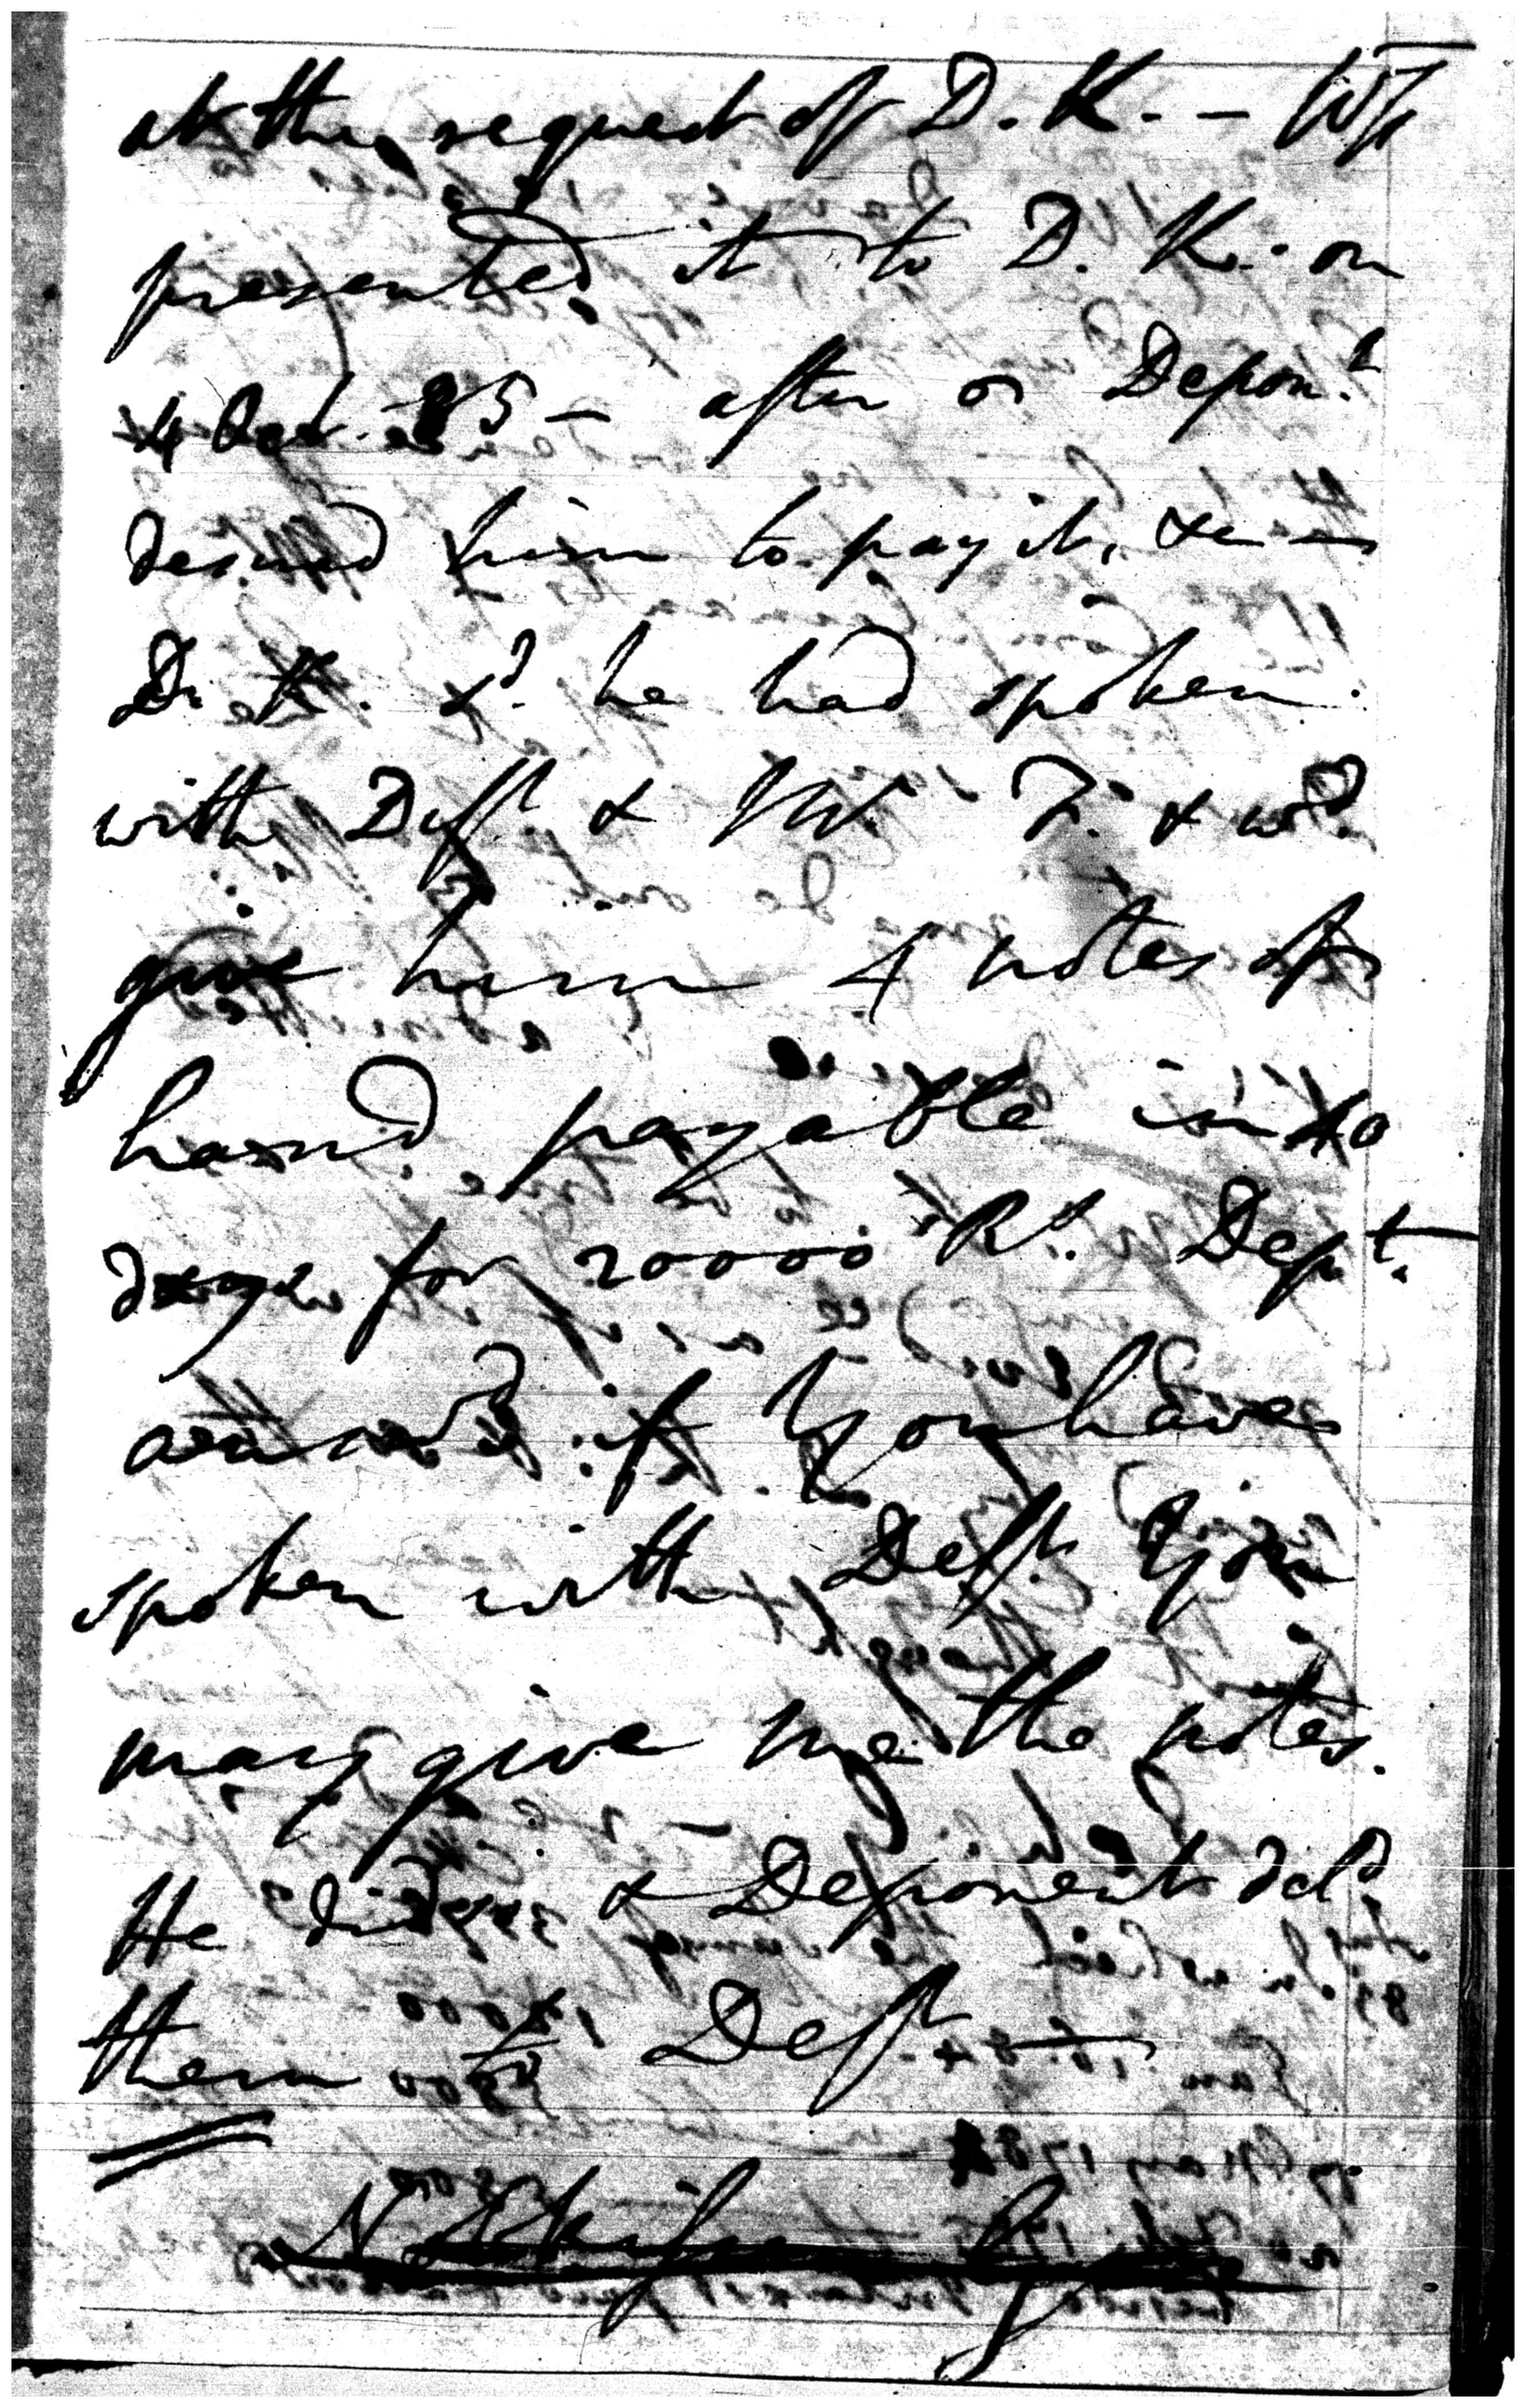 at the request of D. K. — W T
presented it to D. K. on
4 Oct. 85 — after Depon.t
desired him to pay it, &c —
D. K. s.d he had spoken
with Deft & W. F. & w.d
give him 4 notes of
hand payable in 40
days for 20000 R.s Dep.t
answd if You have
spoken with Deft You
may give me the notes.
He did & Deponent deld
them to Deft